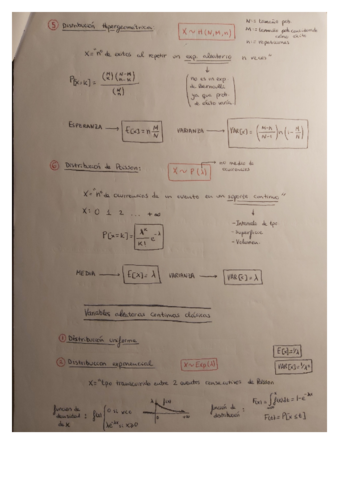 ⑤ Distribución Hipergeométrica: X ~ H(N, M, n)
N = tamaño pob.
n = repeticiones
X = "nº de éxitos al repetir un exp. aleatorio n veces"
P[X=k] = (M k)(N-M n-k) / (N n)
no es un exp. de Bernoulli
ya que prob.
de éxito varía
ESPERANZA → E[X] = n M/N VARIANZA → VAR[X] = (N-n / N-1) n (1 - M/N)
⑥ Distribució de Poisson: X ~ P(λ)
nº medio de
ocurrencias
X = "nº de ocurrencias de un evento en un soporte continuo"
X = 0 1 2 ... +∞
- Intervalo de tpo
- Superficie
- Volumen
P[X=k] = λ^k / k! e^-λ
MEDIA → E[X] = λ VARIANZA → VAR[X] = λ
Variables aleatorias continuas clásicas
① Distribución uniforme
② Distribución exponencial: X ~ Exp(λ)
E[X] = 1/λ
VAR[X] = 1/λ²
X = "tpo transcurrido entre 2 eventos consecutivos de Poisson
función de
densidad
de X
0 λ f(x)
función de
distribución
F(x) = P[X ≤ x]